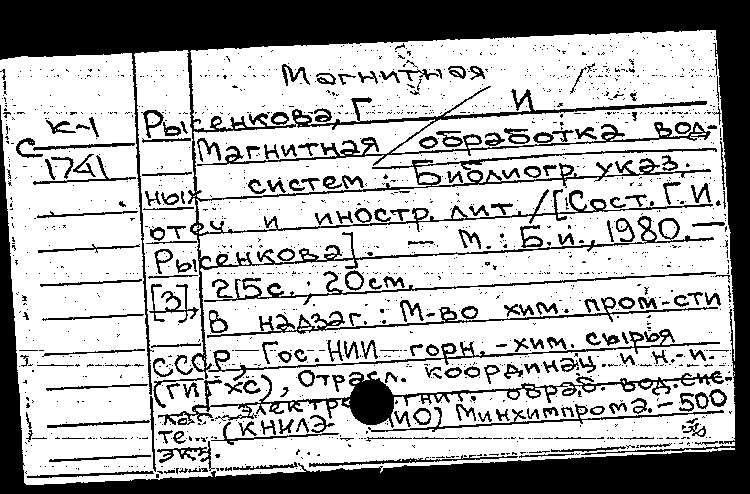 Магнитная
Рысенкова, Г И
К-1
С
1741
Магнитная обработка вод-
ных систем : Библиогр. указ.
отеч. и иностр. лит. / [Сост. Г. И.
Рысенкова]. — М. : Б. и., 1980. —
[3], 215 с. ; 20 см.
В надзаг. : М-во хим. пром-сти
СССР, Гос. НИИ горн.-хим. сырья
(ГИГХС), Отрасл. координац. и н.-и.
лаб. обраб. вод. сис-
те.. (КНИЛЭ- МИО) Минхимпрома. — 500
экз.